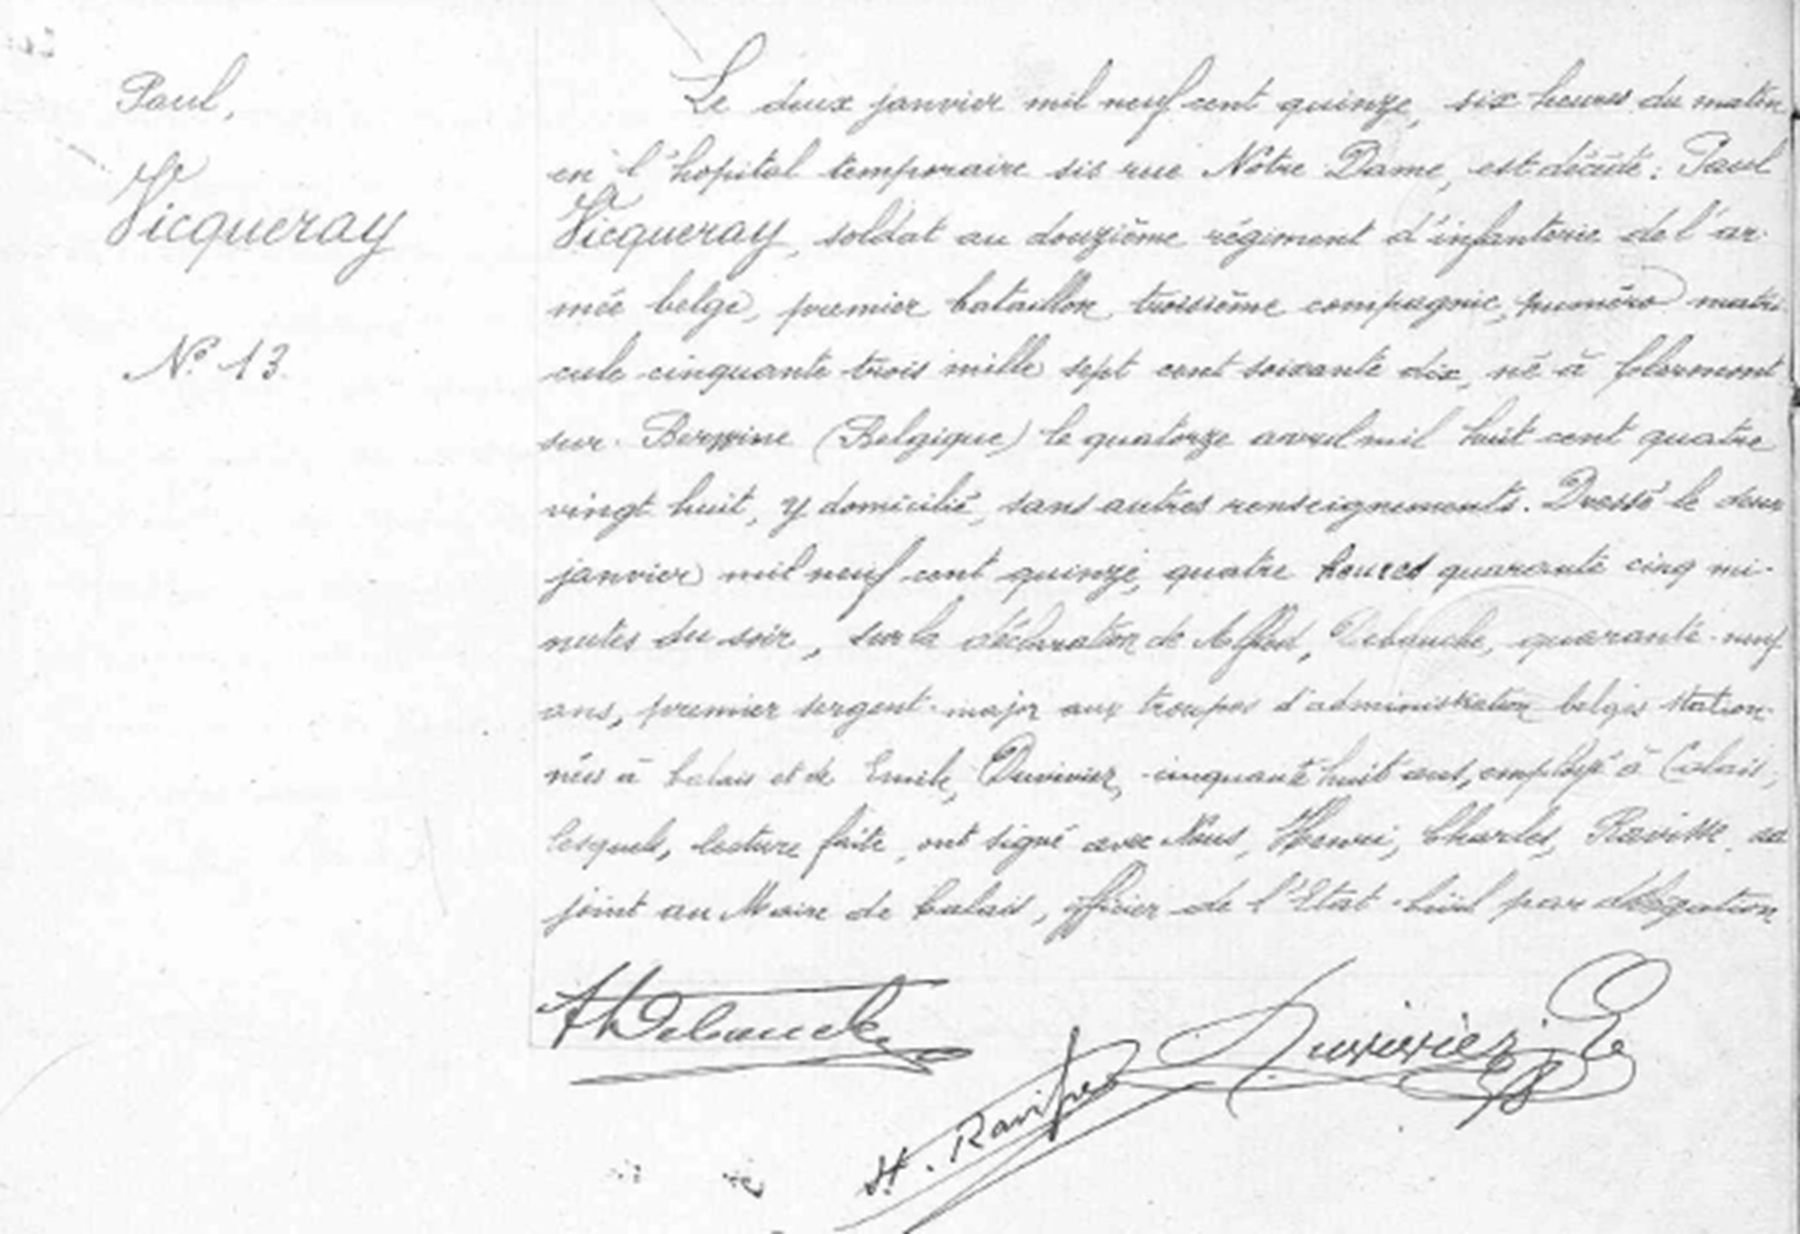 Paul,
Vicqueray
No 13.
Le deux janvier mil neuf cent quinze, six heures du matin
en l'hopital temporaire sis rue Notre Dame, est décédé : Paul
Vicqueray, soldat au douzième régiment d'infanterie de l'ar-
mée belge, premier bataillon, troisième compagnie, numéro matri
cule cinquante trois mille sept cent soixante dix, né à Clermont
sur Berwine (Belgique) le quatorze avril mil huit cent quatre
vingt huit, y domicilié, sans autres renseignements. Dressé le deux
janvier mil neuf cent quinze, quatre heures quarante cinq mi-
nutes du soir, sur la déclaration de Alfred, Debauche, quarante-neuf
ans, premier sergent-major aux troupes d'administration belges station-
nées à Calais et de Emile, Duvivier, cinquante huit ans, employé à Calais,
lesquels, lecture faite, ont signé avec Nous, Henri, Charles, Ravisse, ad
joint au Maire de Calais, officier de l'Etat-Civil par délégation
A Debauche
Duvivier E
H. Ravisse